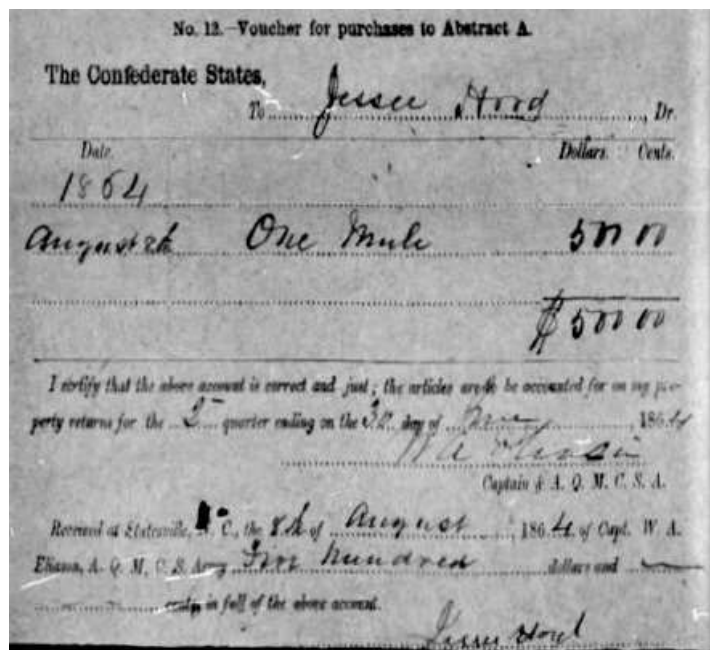 No. 12.—Voucher for purchases to Abstract A.
The Confederate States,
To Jesse Hood, Dr.
Date. Dollars. Cents.
1864
August 8th One Mule 500 00
$500 00
I certify that the above account is correct and just; the articles are to be accounted for on my pro-
perty returns for the 2 quarter ending on the 30 day of June, 1864
W A Eliason
Captain & A. Q. M. C. S. A.
Received at Statesville, N. C., the 8th of August, 1864, of Capt. W. A.
Eliason, A. Q. M. C. S. Army Five hundred dollars and
cents, in full of the above account.
Jesse Hood